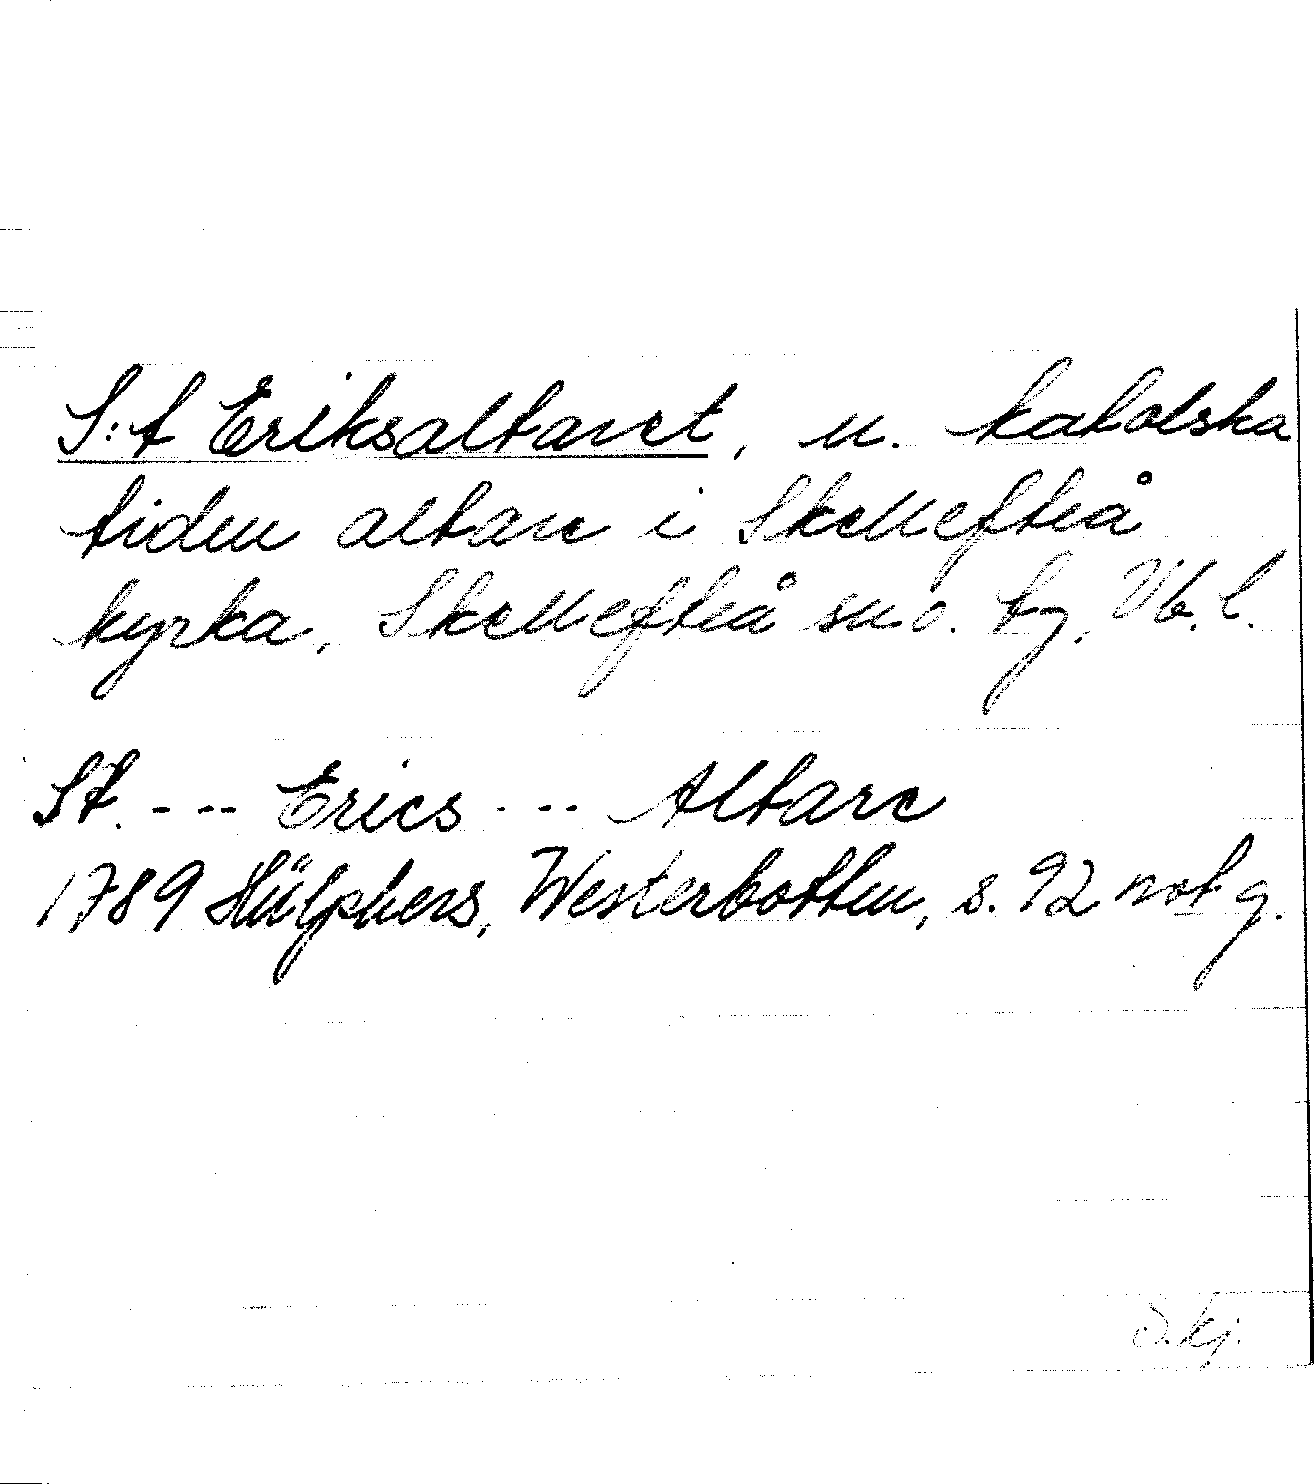 S:t Eriksaltaret, u. katolska
tiden altare i Skellefteå
kyrka, Skellefteå sn o. tg, Vb. l.
St. --- Erics --- Altare
1789 Hülphers, Westerbotten, s. 92 not q.